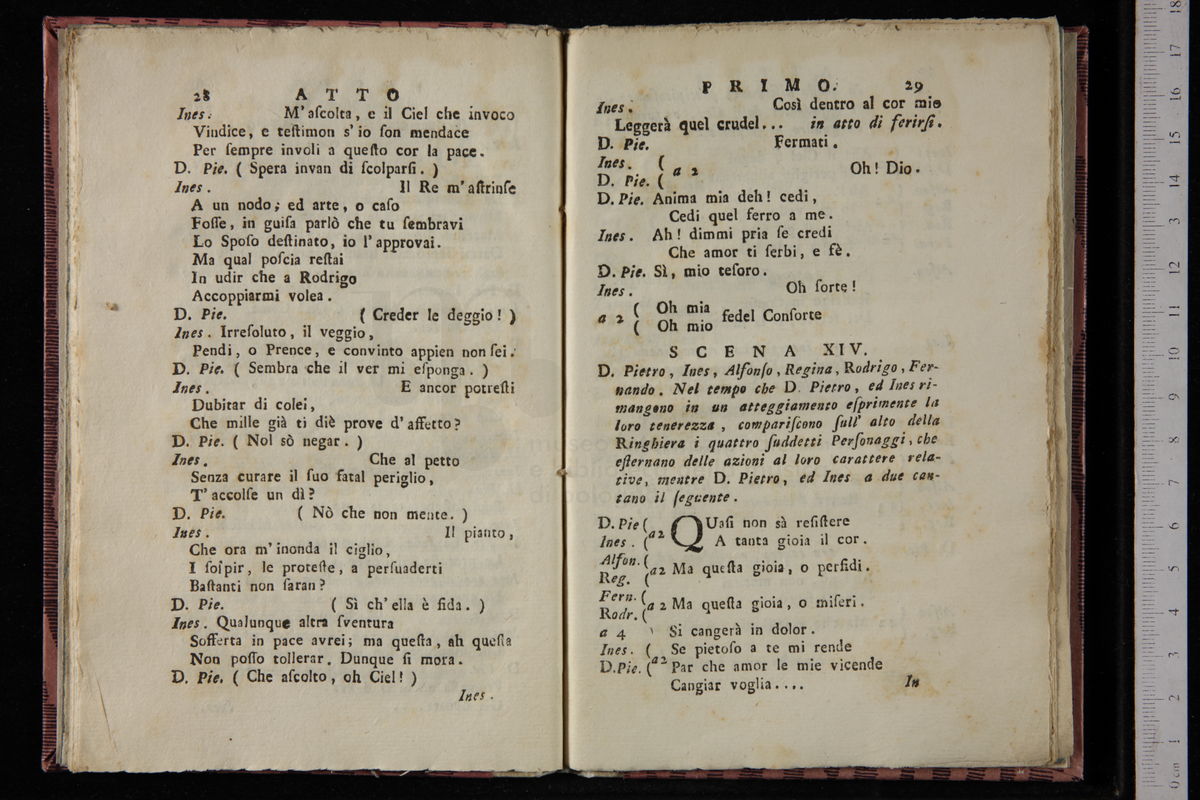 28 ATTO
Ines. M'aſcolta, e il Ciel che invoco
Vindice, e teſtimon s'io ſon mendace
Per ſempre involi a queſto cor la pace.
D. Pie. ( Spera invan di ſcolparſi. )
Ines. Il Re m'aſtrinſe
A un nodo; ed arte, o caſo
Foſſe, in guiſa parlò che tu ſembravi
Lo Spoſo deſtinato, io l'approvai.
Ma qual poſcia reſtai
In udir che a Rodrigo
Accoppiarmi volea.
D. Pie. ( Creder le deggio! )
Ines. Irreſoluto, il veggio,
Pendi, o Prence, e convinto appien non ſei.
D. Pie. ( Sembra che il ver mi eſponga. )
Ines. E ancor potreſti
Dubitar di colei,
Che mille già ti diè prove d'affetto?
D. Pie. ( Nol sò negar. )
Ines. Che al petto
Senza curare il ſuo fatal periglio,
T'accolſe un dì?
D. Pie. ( Nò che non mente. )
Ines. Il pianto,
Che ora m'inonda il ciglio,
I ſoſpir, le proteſte, a perſuaderti
Baſtanti non ſaran?
D. Pie. ( Sì ch'ella è fida. )
Ines. Qualunque altra ſventura
Sofferta in pace avrei; ma queſta, ah queſta
Non poſſo tollerar. Dunque ſi mora.
D. Pie. ( Che aſcolto, oh Ciel! )
Ines.
PRIMO. 29
Ines. Così dentro al cor mio
Leggerà quel crudel... in atto di ferirſi.
D. Pie. Fermati.
Ines. (
D. Pie. ( a 2 Oh! Dio.
D. Pie. Anima mia deh! cedi,
Cedi quel ferro a me.
Ines. Ah! dimmi pria ſe credi
Che amor ti ſerbi, e fè.
D. Pie. Sì, mio teſoro.
Ines. Oh ſorte!
a 2 ( Oh mia
( Oh mio fedel Conſorte
SCENA XIV.
D. Pietro, Ines, Alfonſo, Regina, Rodrigo, Fer-
nando. Nel tempo che D. Pietro, ed Ines ri-
mangono in un atteggiamento eſprimente la
loro tenerezza, compariſcono ſull' alto della
Ringhiera i quattro ſuddetti Perſonaggi, che
eſternano delle azioni al loro carattere rela-
tive, mentre D. Pietro, ed Ines a due can-
tano il ſeguente.
D. Pie ( a2 QUaſi non sà reſiſtere
Ines. ( A tanta gioia il cor.
Alfon. (
Reg. ( a2 Ma queſta gioia, o perfidi.
Fern. (
Rodr. ( a 2 Ma queſta gioia, o miſeri.
a 4 Si cangerà in dolor.
Ines. ( Se pietoſo a te mi rende
D. Pie. ( a2 Par che amor le mie vicende
Cangiar voglia....
In